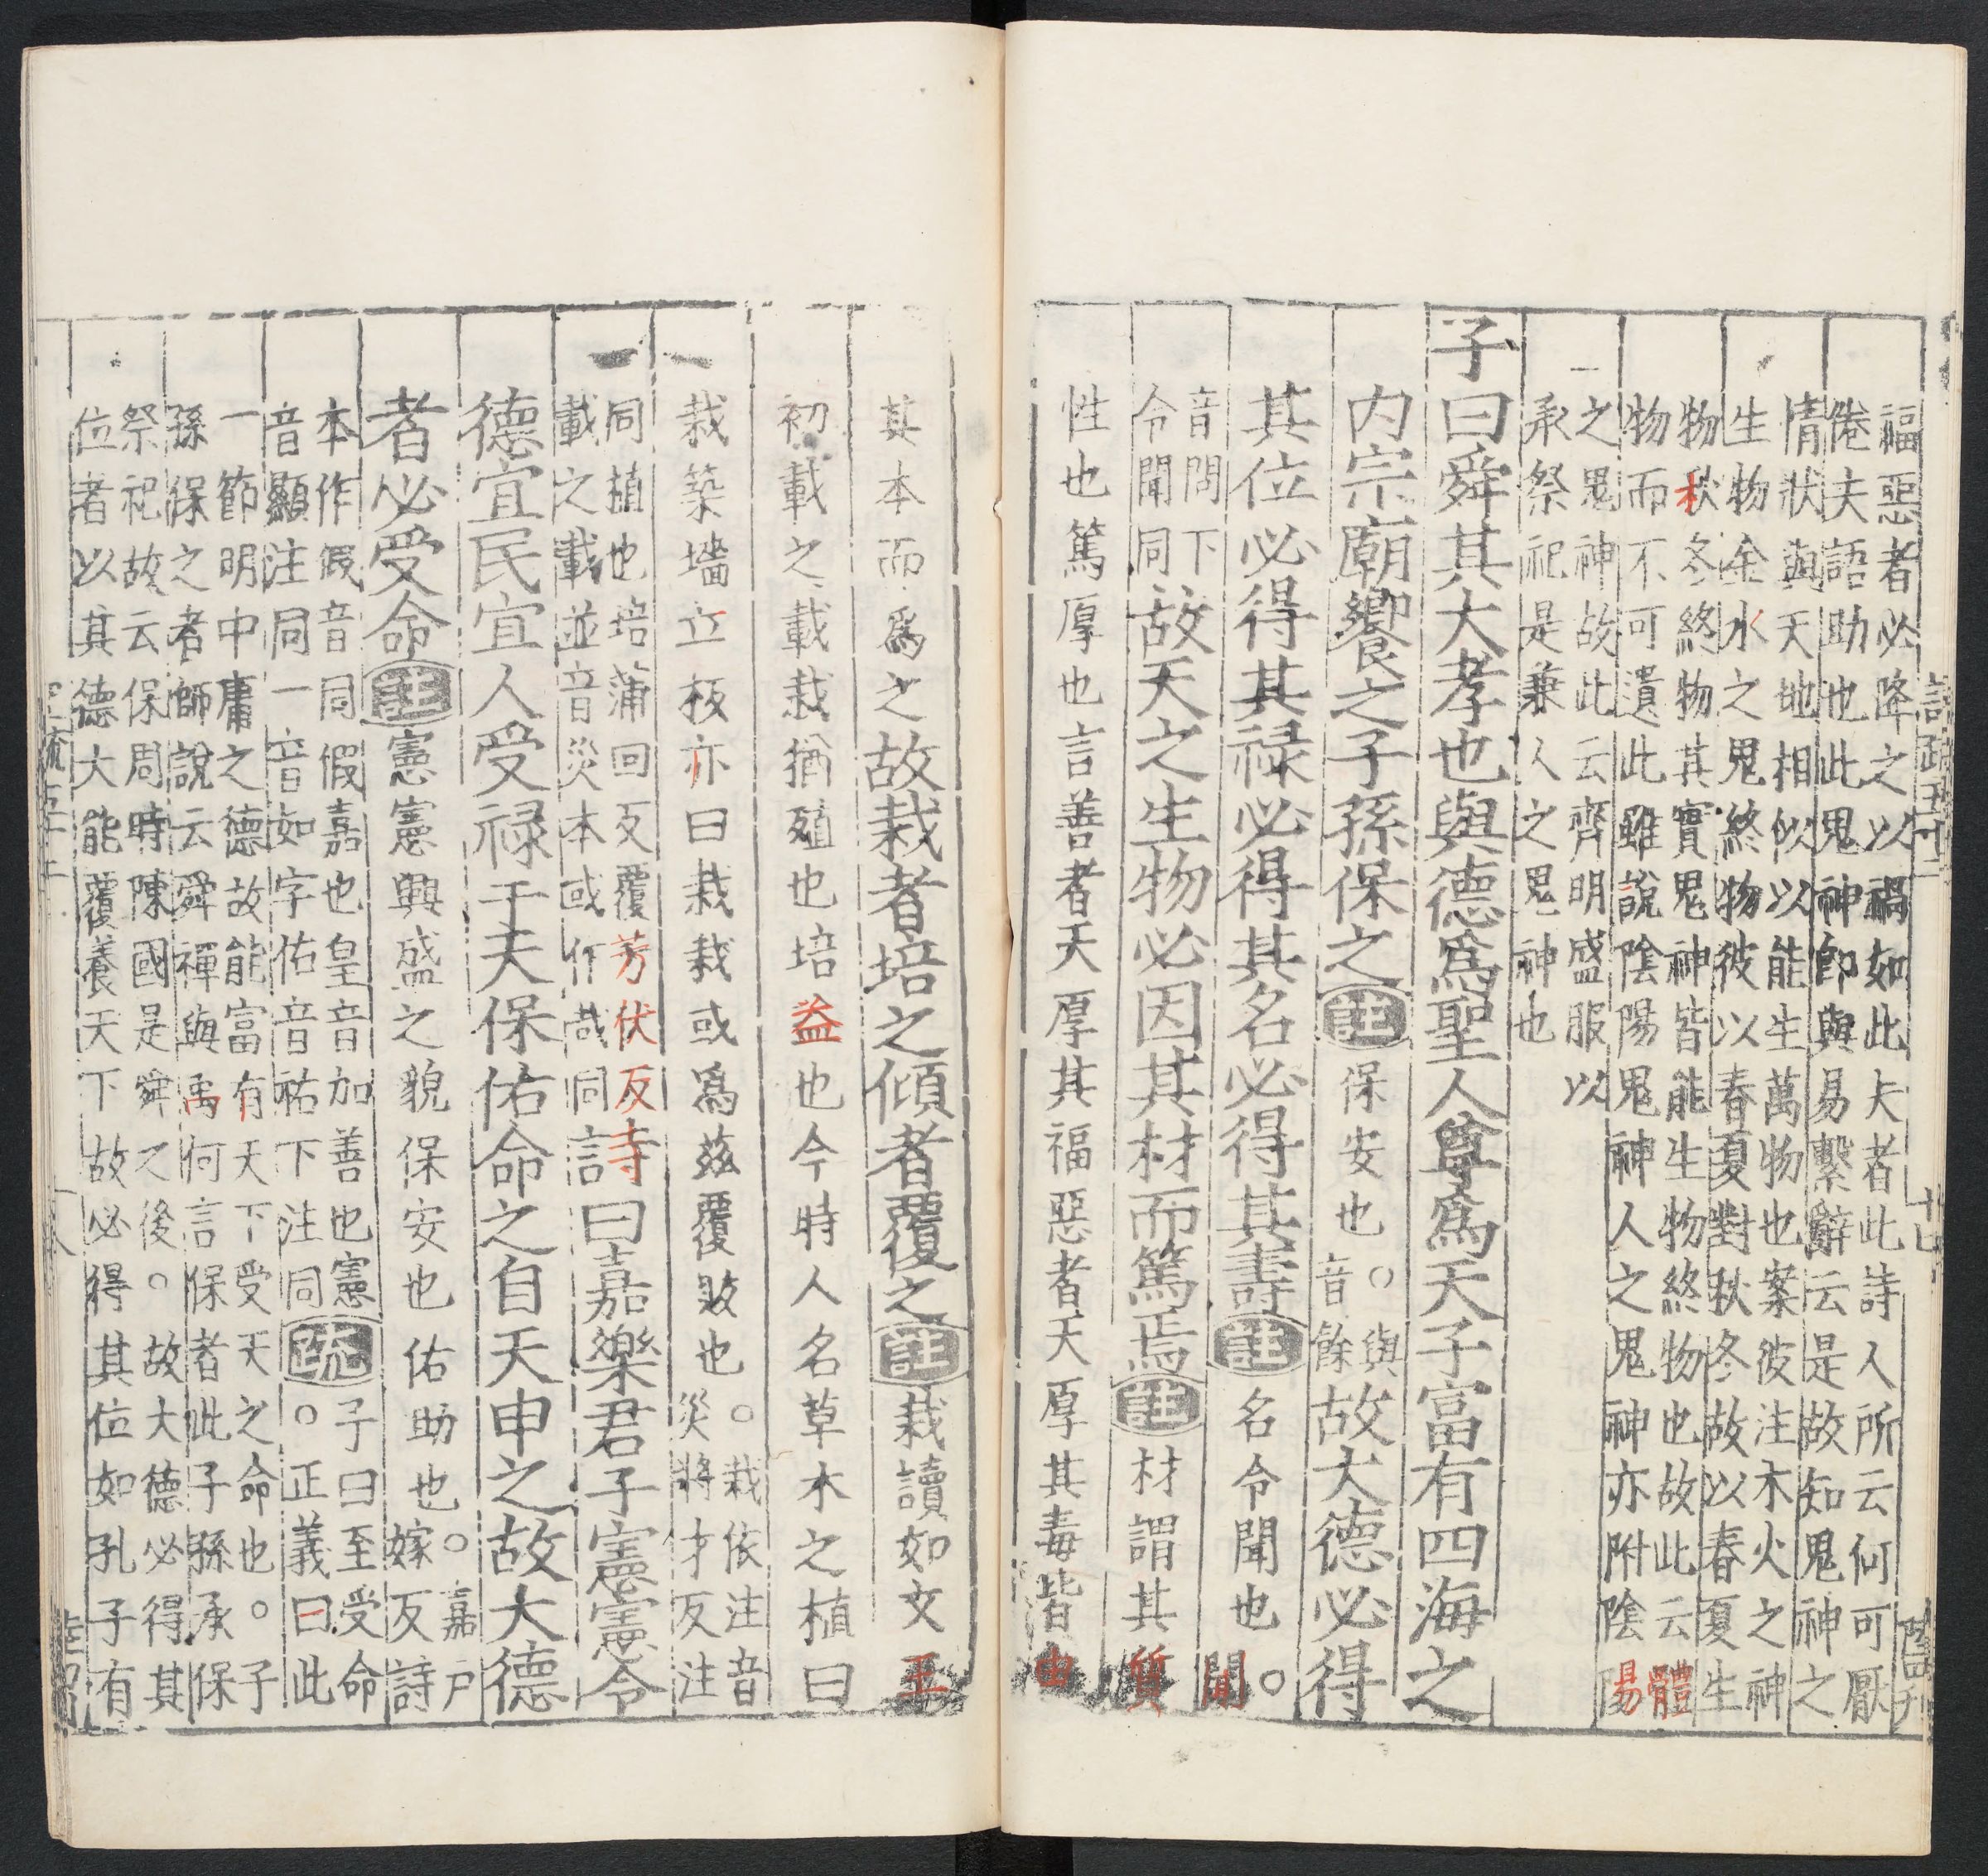 福惡者必降之以禍如此夫者此詩人所云何可厭
倦夫語助也此鬼神卽與易繫辭云是故知鬼神之
情狀與天地相似以能生萬物也案彼注木火之神
生物金水之鬼終物彼以春夏對秋冬故以春夏生
物秋冬終物其實鬼神皆能生物終物也故此云體
物而不可遺此雖說陰陽鬼神人之鬼神亦附陰陽
之鬼神故此云齊明盛服以
承祭祀是兼人之鬼神也
子曰舜其大孝也與德爲聖人尊爲天子富有四海之
內宗廟饗之子孫保之註保安也○與
音餘故大德必得
其位必得其禄必得其名必得其壽註名令聞也○聞
音問下
令聞同故天之生物必因其材而篤焉註材謂其質
性也篤厚也言善者天厚其福惡者天厚其毒皆由
其本而爲之故栽者培之傾者覆之註栽讀如文王
初載之載栽猶殖也培益也今時人名草木之植曰
栽築墻立板亦曰栽栽或爲茲覆敗也○栽依注音
災將才反注
同植也培蒲回反覆芳伏反
載之載並音災本或作哉同詩曰嘉樂君子憲憲令
德宜民宜人受禄于天保佑命之自天申之故大德
者必受命註憲憲興盛之貌保安也佑助也○嘉戶
嫁反詩
本作假音同假嘉也皇音加善也憲
音顯注同一音如字佑音祐下注同疏子曰至受命
○正義曰此
一節明中庸之德故能富有天下受天之命也○子
孫保之者師說云舜禪與禹何言保者此子孫承保
祭祀故云保周時陳國是舜之後○故大德必得其
位者以其德大能覆養天下故必得其位如孔子有